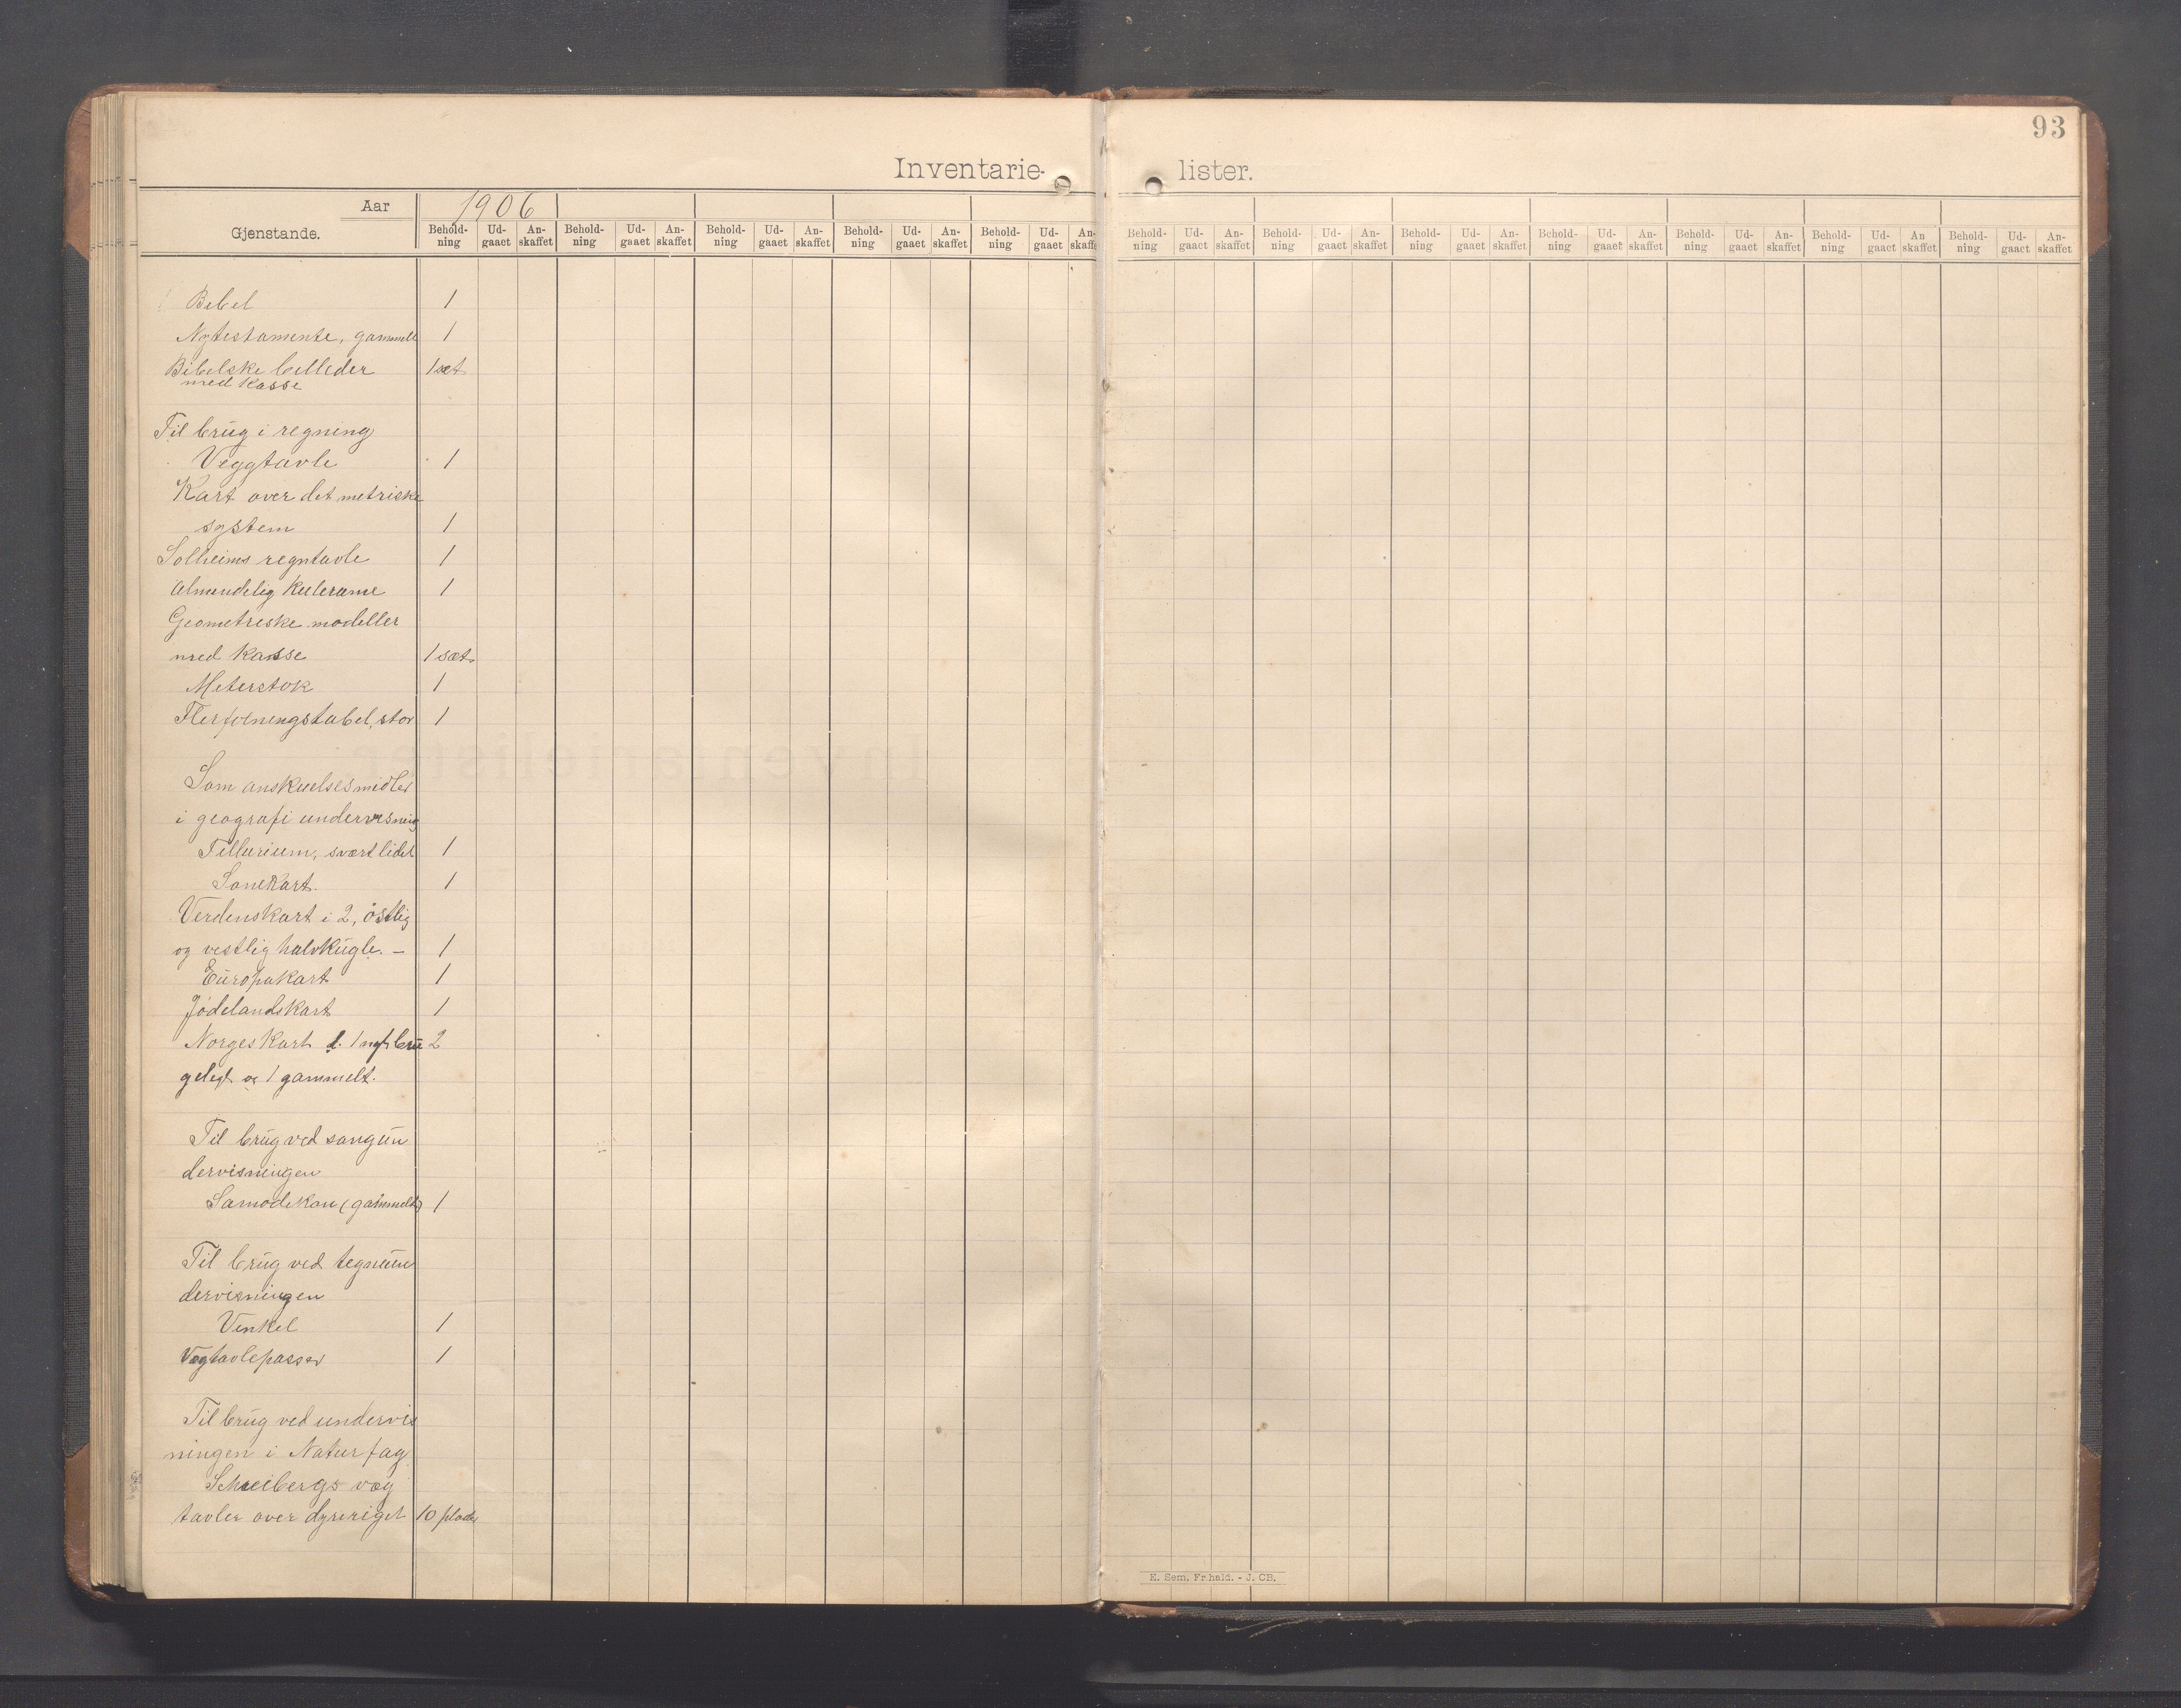 93
Inventarie- lister.
Aar 1906
Gjenstande. Behold-ning Ud-gaaet An-skaffet Behold-ning Ud-gaaet An-skaffet Behold-ning Ud-gaaet An-skaffet Behold-ning Ud-gaaet An-skaffet Behold-ning Ud-gaaet An-skaffet Behold-ning Ud-gaaet An-skaffet Behold-ning Ud-gaaet An-skaffet Behold-ning Ud-gaaet An-skaffet Behold-ning Ud-gaaet An-skaffet Behold-ning Ud-gaaet An-skaffet Behold-ning Ud-gaaet An skaffet Behold-ning Ud-gaaet An-skaffet
Bibel 1
Nytestamente, gammelt 1
Bibelske billeder 1 sæt
med kasse
Til brug i regning
Veggtavle 1
Kart over det metriske
system 1
Solheims regntavle 1
Almindelig kulerame 1
Geometriske modeller
med kasse 1 sæt.
Meterstok 1
Flerfoldningstabel, stor 1
Som anskuelsesmidler
i geografi undervisning
Tellurium, svært lidet 1
Sonekart. 1
Verdenskart i 2, østlig
og vestlig halvkugle. — 1
Europakart 1
Jødelandskart 1
Norgeskart 1 nyt bru 2
geligt og 1 gammelt.
Til brug ved sangun
dervisningen
Samodikon (gammelt) 1
Til brug ved tegneun
dervisningen
Vinkel 1
Vægtavlepasser 1
Til brug ved undervis
ningen i Naturfag
Schreibergs væg
tavler over dyreriget 10 plader
E. Sem. Fr.hald. - J. CB.